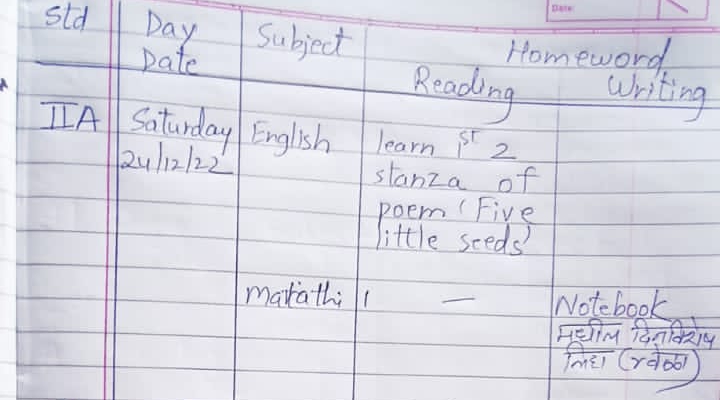 Date
Std Day Subject Homeword
Date Reading Writing
IIA Saturday English learn 1st 2
24/12/22 stanza of
poem 'Five
little seeds'
marathi — Notebook
मधील दिनविशेष
लिहा